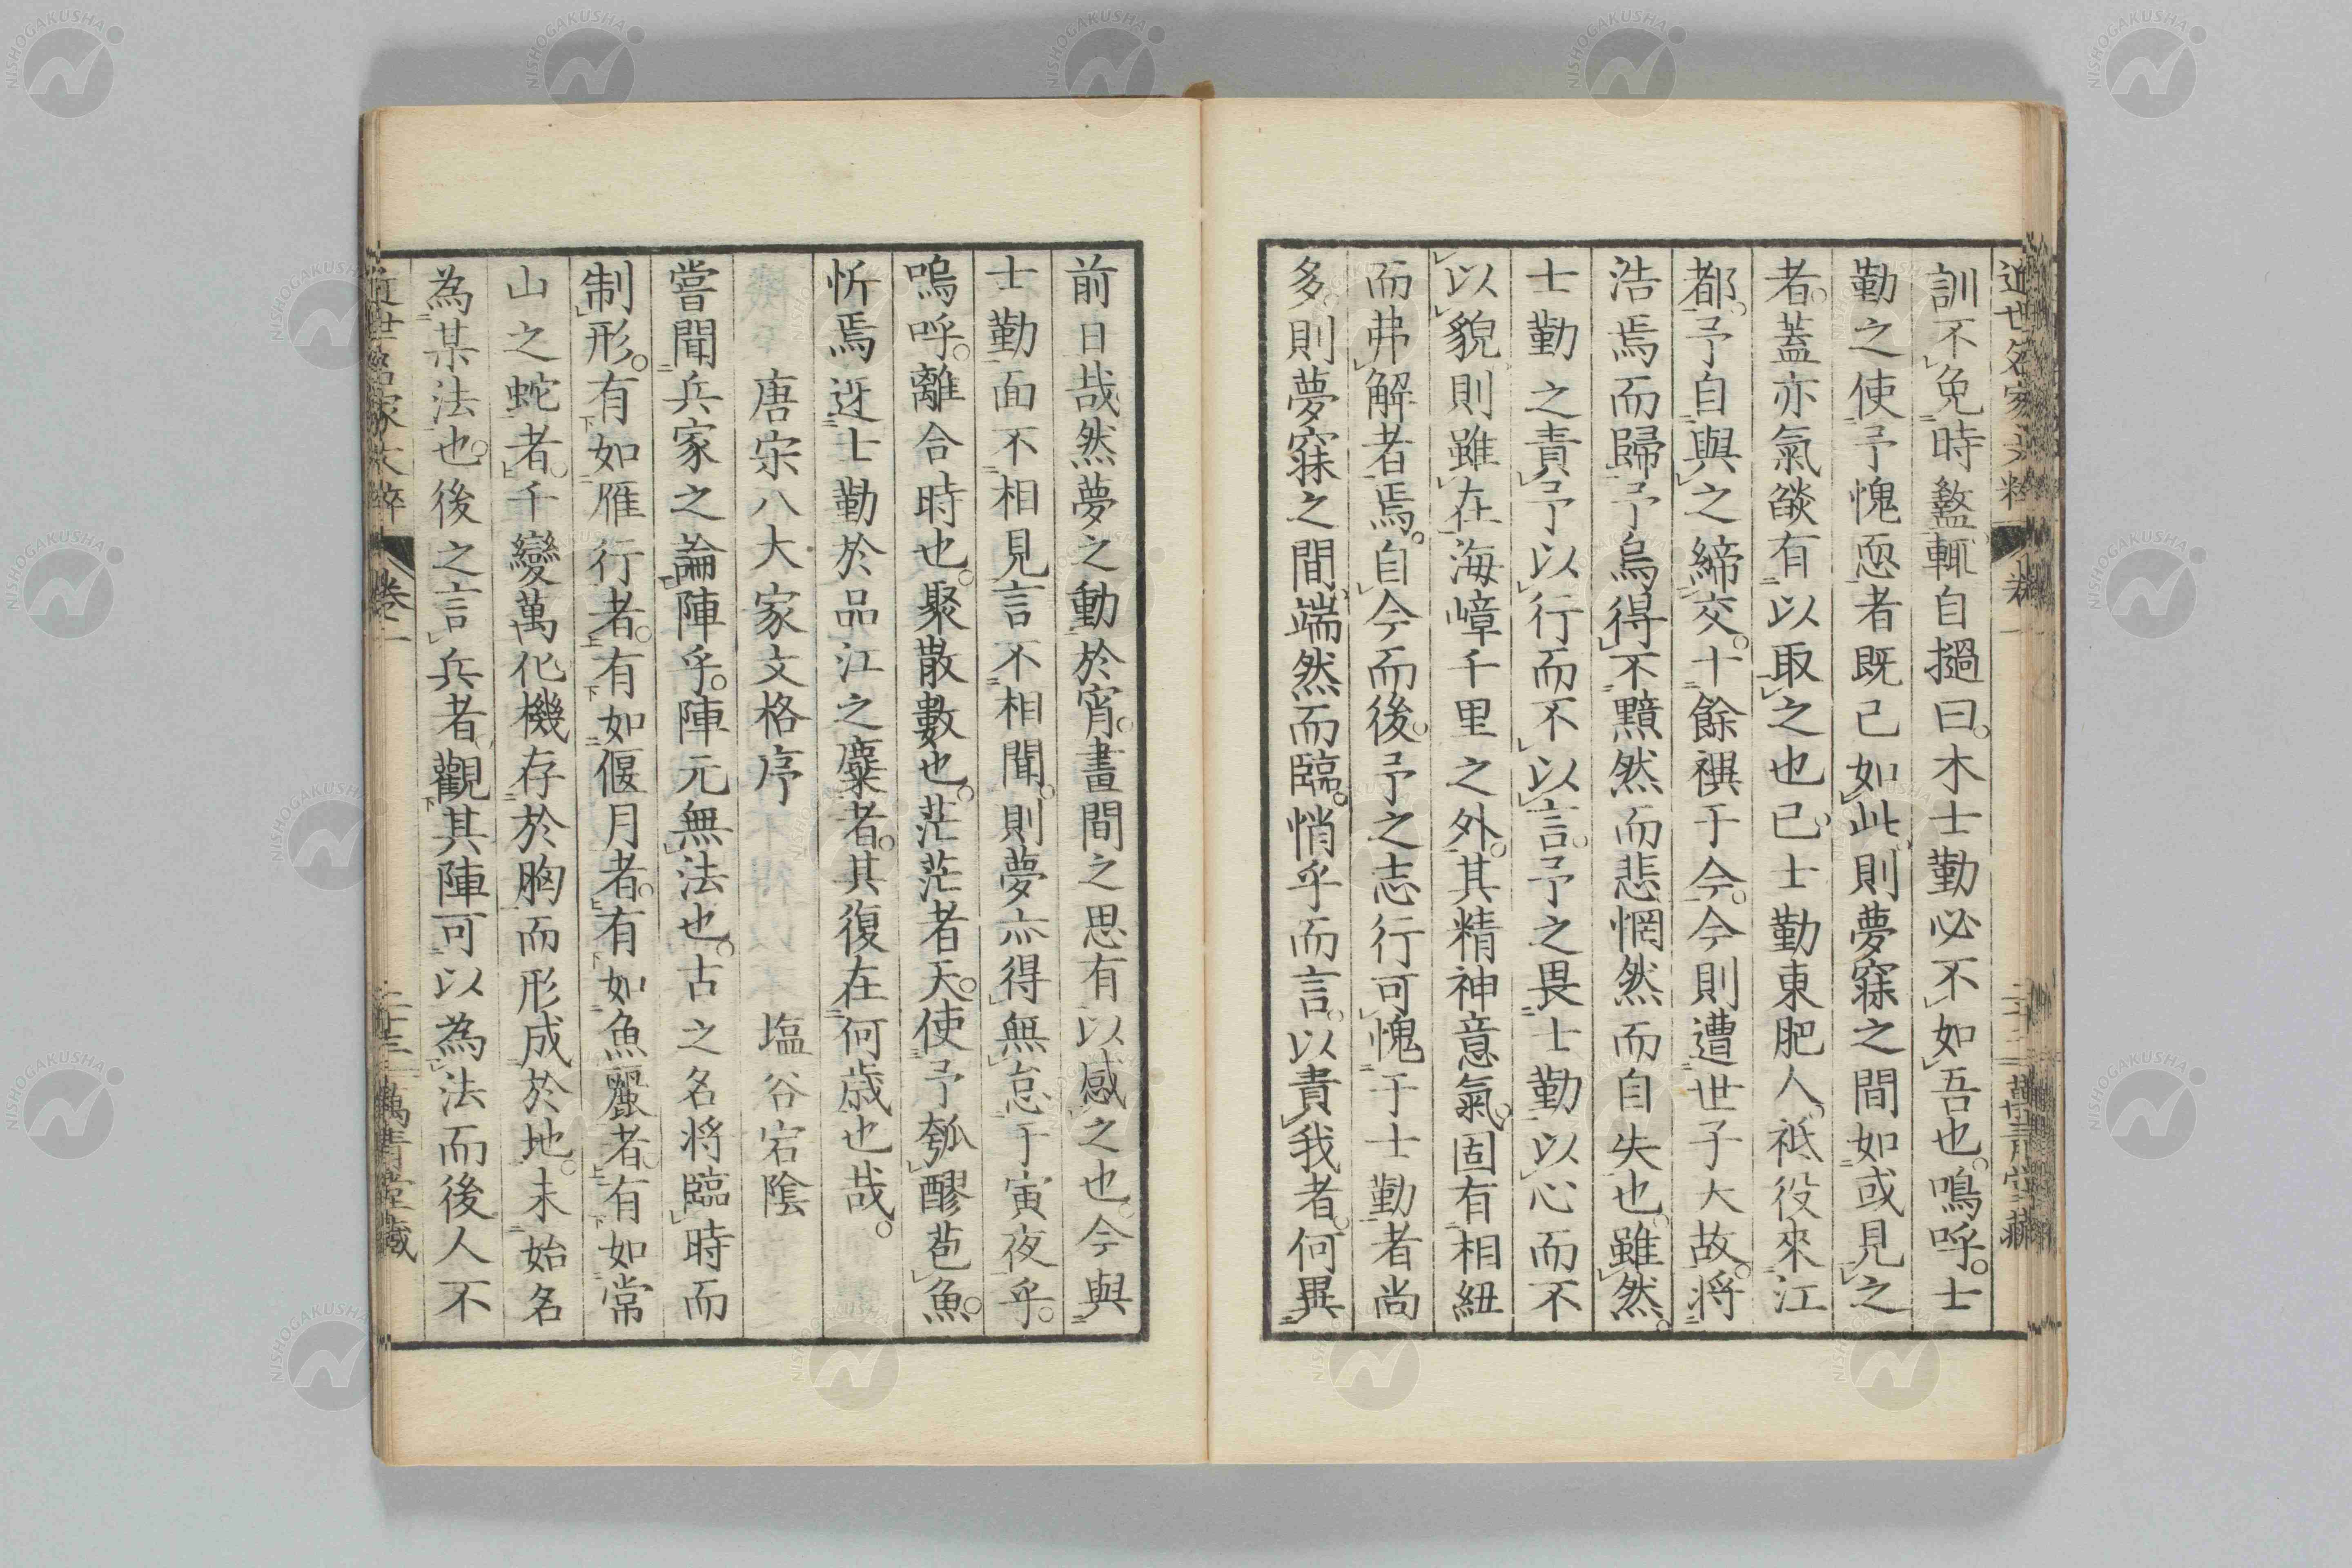 近世名家文粹 卷一 萬青堂藏
訓不免時盭輒自撾曰。木士勤必不如吾也。鳴呼。士
勤之使予愧恧者既已如此則夢寐之間如或見之
者。蓋亦氣燄有以取之也已。士勤東肥人。祗役來江
都。予自與之締交。十餘禩于今。今則遭世子大故。將
浩焉而歸予烏得不黯然而悲惘然而自失也。雖然。
士勤之責予以行而不以言。予之畏士勤以心而不
以貌則雖在海嶂千里之外。其精神意氣。固有相紐
而弗解者焉。自今而後。予之志行可愧于士勤者尚
多。則夢寐之間端然而臨。悄乎而言。以責我者。何異
前日哉然夢之動於宵。晝間之思有以感之也。今與
士勤面不相見言不相聞。則夢亦得無怠于寅夜乎。
嗚呼。離合時也。聚散數也。茫茫者天。使予瓠醪苞魚。
忻焉迓士勤於品江之麋者。其復在何歳也哉。
唐宋八大家文格序 塩谷宕陰
嘗聞兵家之論陣乎。陣元無法也。古之名將臨時而
制形。有如雁行者。有如偃月者。有如魚麗者。有如常
山之蛇者。千變萬化機存於胸而形成於地。未始名
為某法也。後之言兵者觀其陣可以為法而後人不
近世名家文粹 卷一 二十三 萬青堂藏
NISHOGAKUSHA